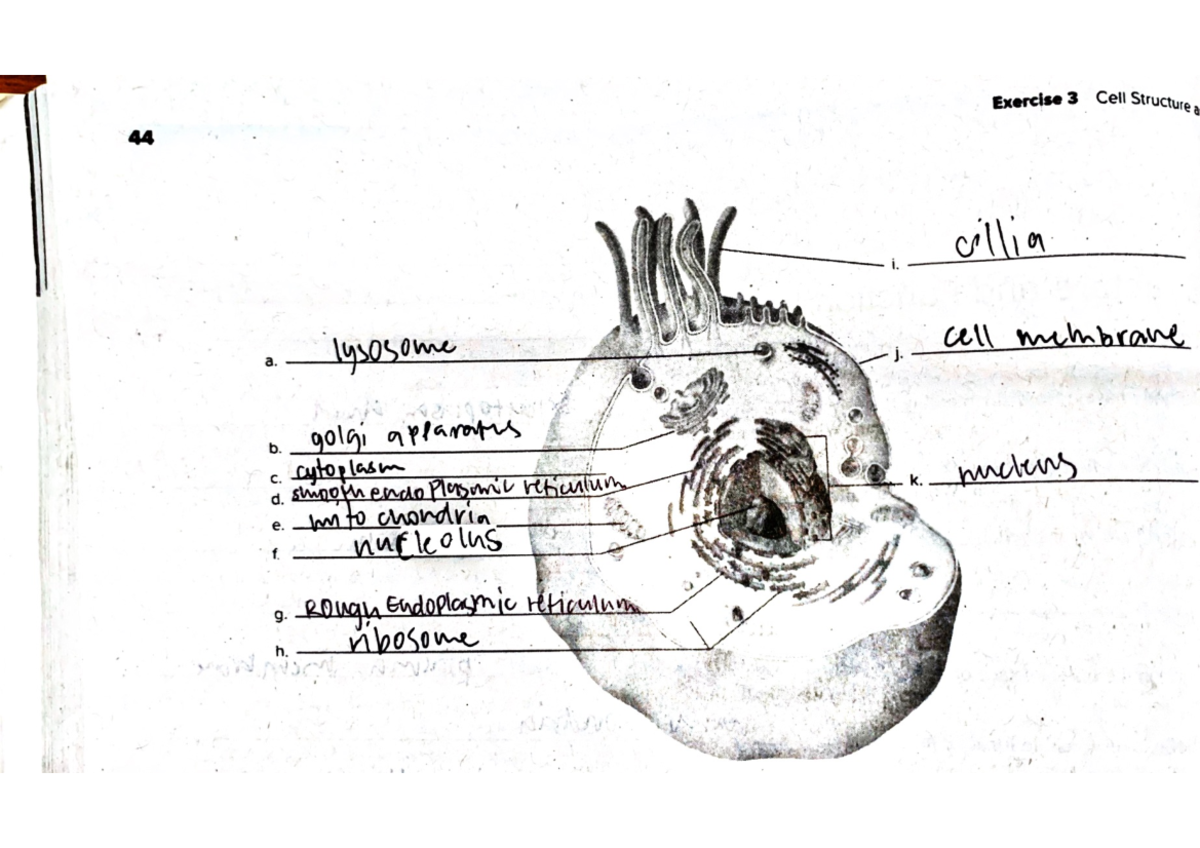 Exercise 3 Cell Structure a
44
i. cillia
a. lysosome
j. cell membrane
b. golgi apparatus
c. cytoplasm
k. nucleus
d. smooth endoplasmic reticulum
e. mito chondria
f. nucleolus
g. Rough Endoplasmic reticulum
h. ribosome